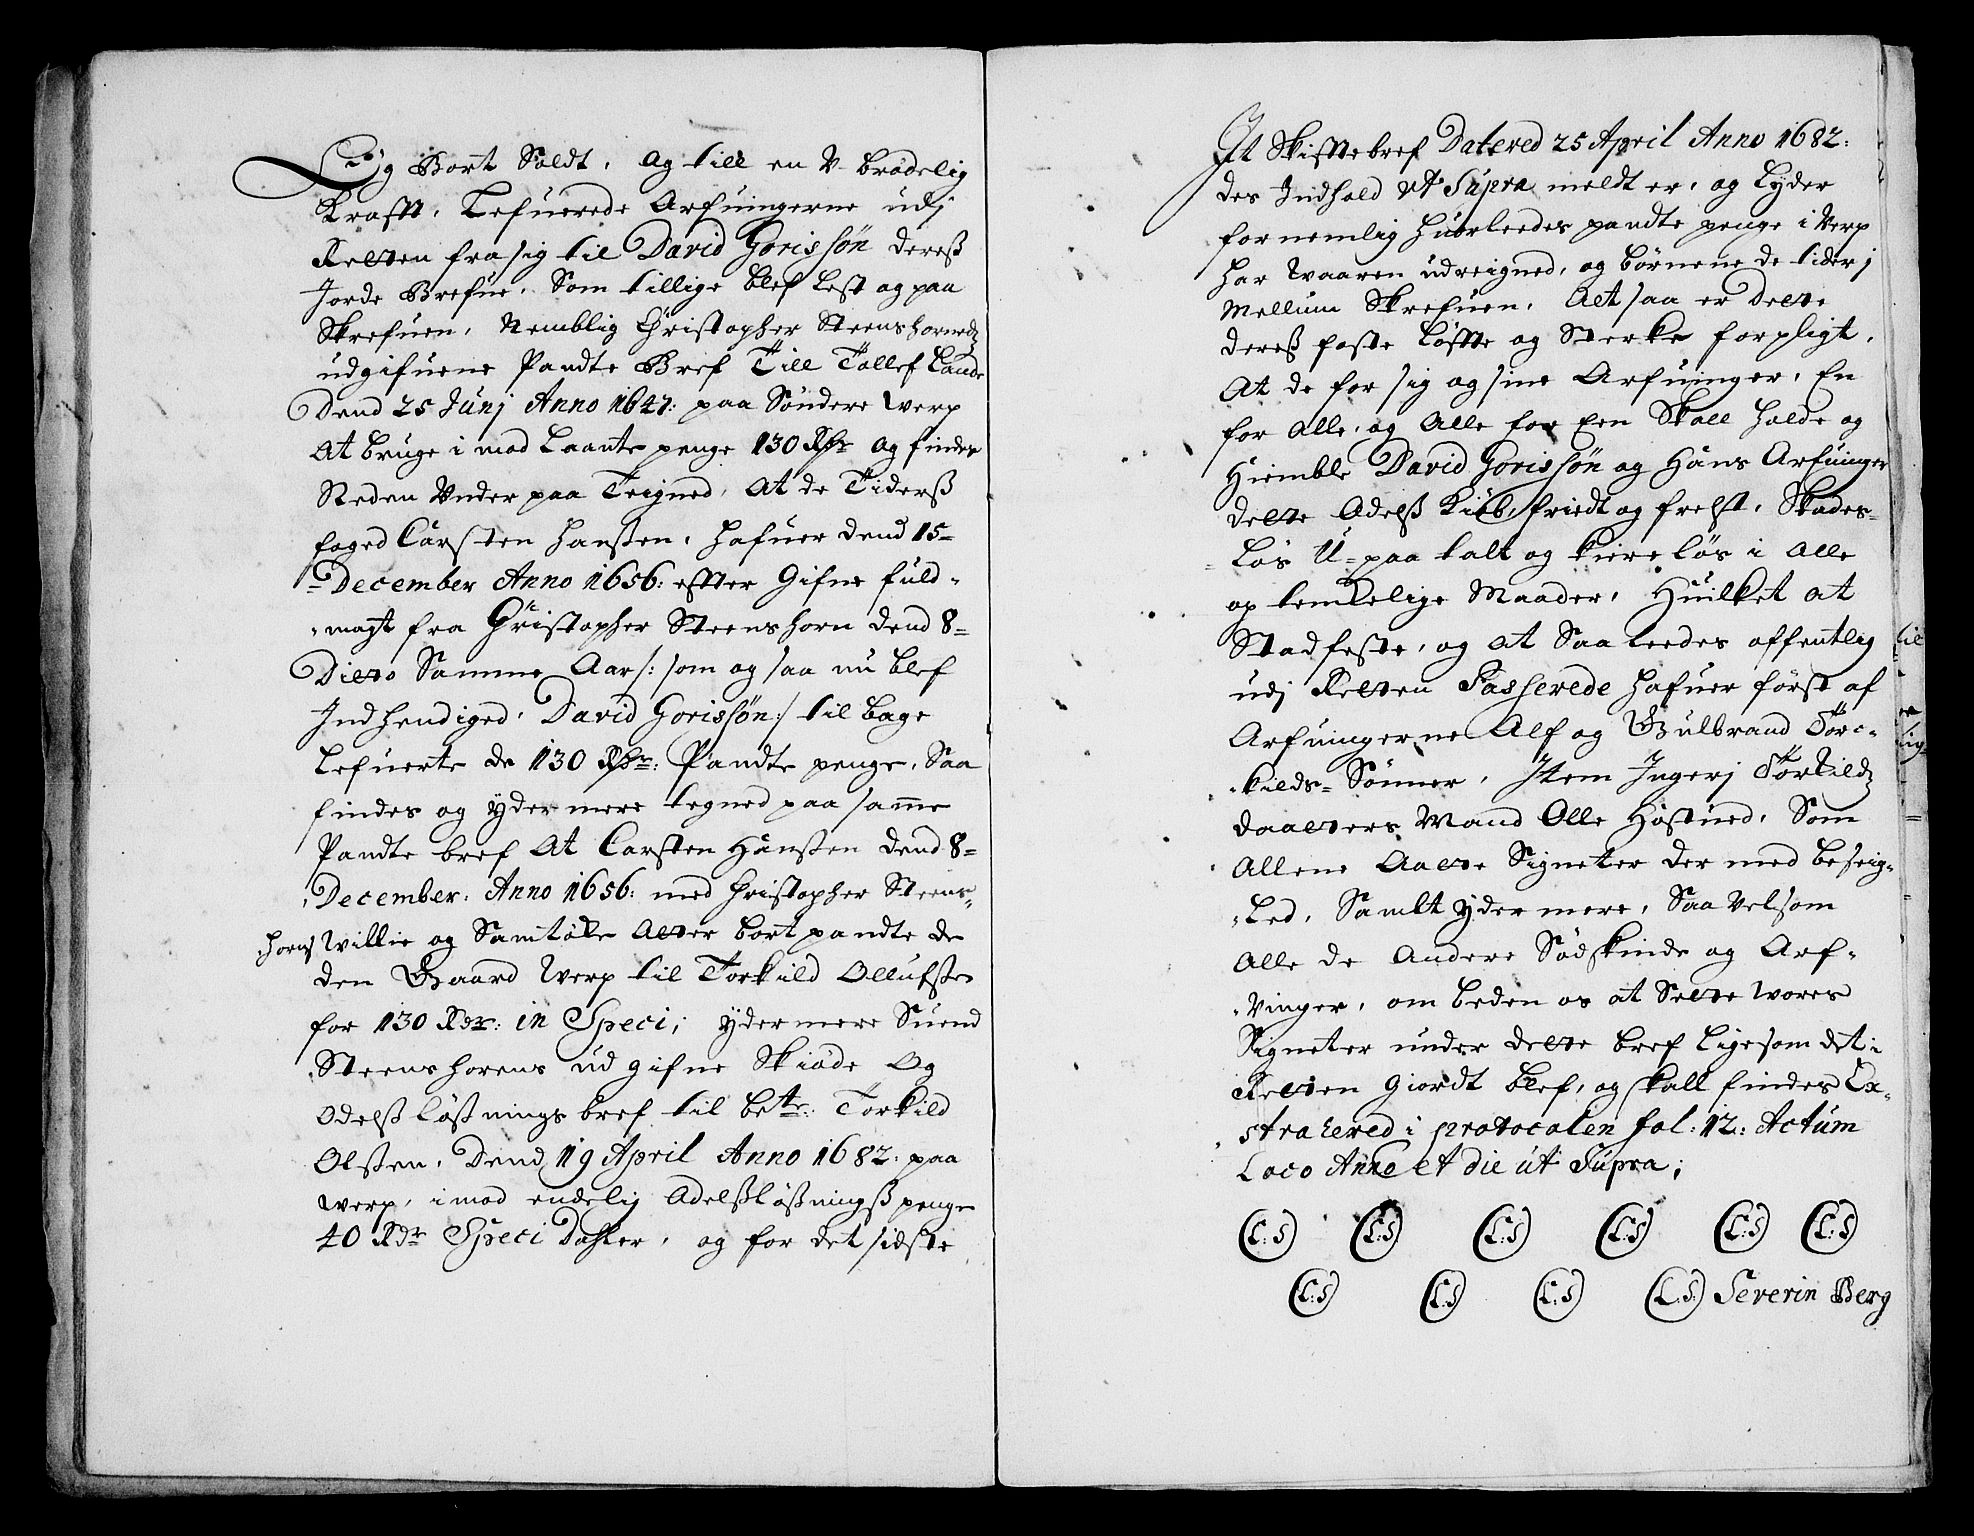 Lig Bort Soldt, og till en V-brødelig
Krafft, Lefuerede Arfuingerne udj
Retten fra sig til David Gorissøn dereß
Jorde Brefue, Som tillige blef Lest og paa
Skrefuen, Nemblig Christopher Steenshorneds
udgifuene Pandte Bref Till Tollef Lande
Dend 25 Junj Anno 1647: paa Söndere Werp
At bruge i mod Laante penge 130 Rdr og findes
Steden Vnder paa Teigned, At de Tiderß
foged Carsten Hansten, hafuer dend 15=
=December Anno 1656: effter Gifne fuld-
-magt fra Christopher Steenshorn dend 8=
Ditto Samme Aar/: som og saa nu blef
Indhendiged, David Gorissøn:/ til bage
Lefuerte de 130 Rdr: Pandte penge, Saa
findes og ÿdermere tegned paa samme
Pandte bref At Carsten Hansten dend 8=
December, Anno 1656: med Christopher Steens-
horns Willie og Samtöcke Atter bort pandte de
den Gaard Werp til Torkild Ollufste
for 130 Rdr: in Speci; ÿdermere Suend
Steenshorens ud gifne Skiöde Og
Odelß Lößnings bref til bete: Torkild
Olsten, Dend 19 April Anno 1682. paa
Werp, imod endelig Odelßlößningß penge
40 Rdr Speci Dahler, og for det sidste
Jt Skifftebref Datered 25 April Anno 1682:
des Indhold Vt Supra meldt er, og Lÿder
fornemlig huorleedes pandte penge i Verp
har Waaren udreigned, og børnene de tiderj
Mellum Skrefuen, Alt saa er dette
dereß faste Löffte og Sterke forpligt,
At de for sig og sine Arfuinger, En
for Alle, og Alle for Een Skall holde og
Hiemble David Gorissøn og Hans Arfuinger
dette Odelß Kiöb, friedt og frelst, Skades-
Lös U-paa talt og kiere lös i Alle
op tenkelige Maader, Huilket at
Stadfeste, og at Saaleedes offentlig
udj Retten Passerede hafuer først af
Arfuingerne Alf og Gulbrand Torc-
-kilds-Sönner, Item Ingerj Torkilds
daatters Mand Olle Hostued, Som
Allene Aatte Signeter der med beseig-
-Led, Samlt ÿdermere, Saa Velsom
Alle de Andere Södskinde og Arf-
-Vinger, om beden os at Sette Wores
Signeter under dette bref Ligesom det i
Retten Giordt blef, og skall findes Ex-
strahered i protocolen fol: 12: Actum
Loco Anno et die ut Supra;
L:S L:S L:S L:S L:S L:S
L:S L:S L:S L:S Severin Berg